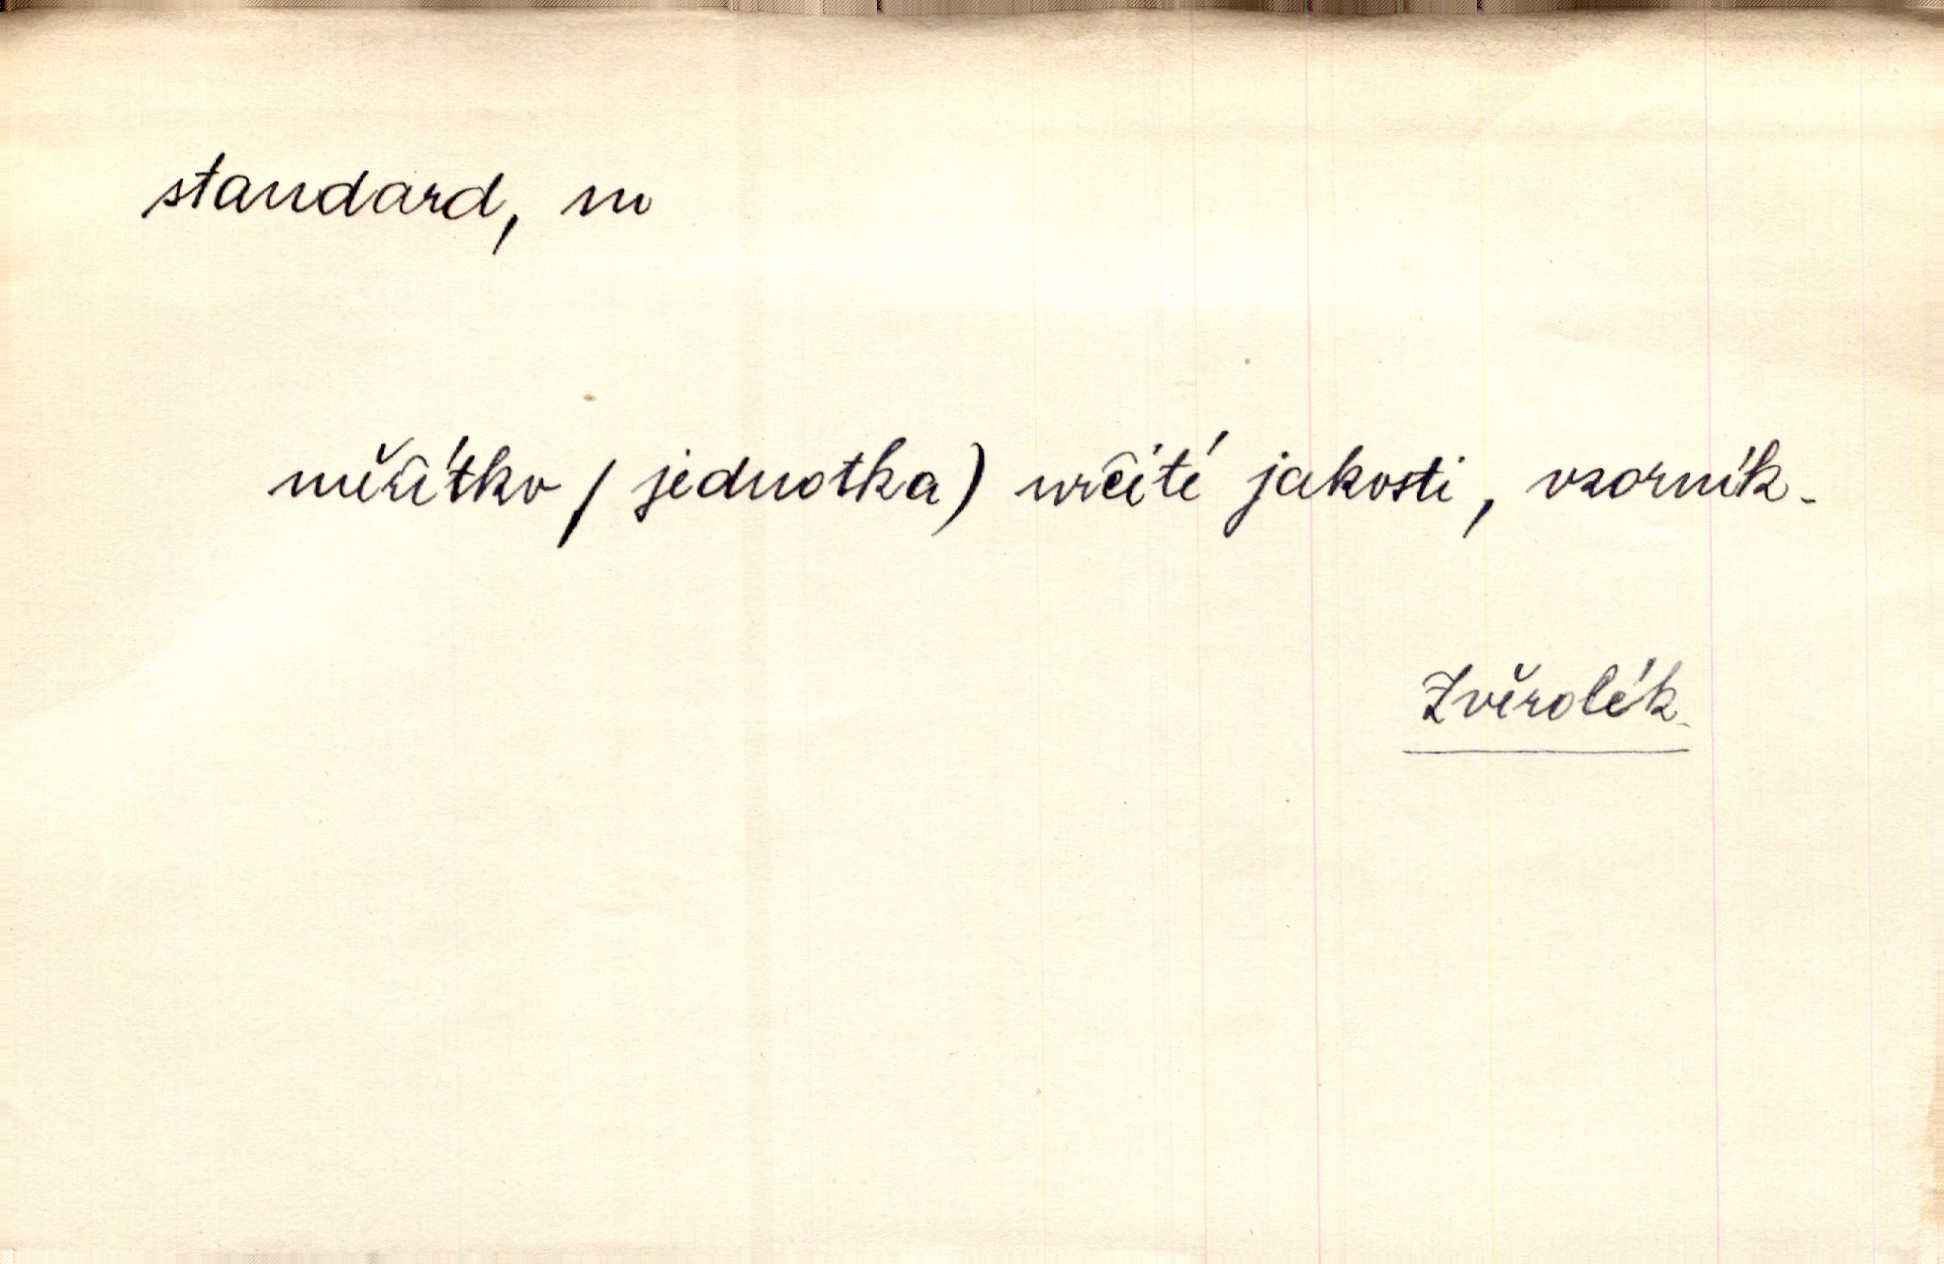 standard, m
měřítko / jednotka) určité jakosti, vzorník.
Zvěrolék.